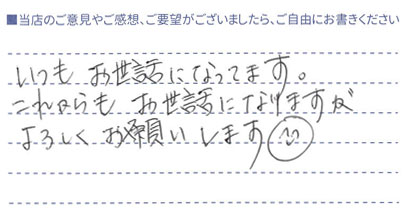 ■当店のご意見やご感想、ご要望がございましたら、ご自由にお書きください
いつも お世話になってます。
これからも お世話になりますが
よろしく お願いします